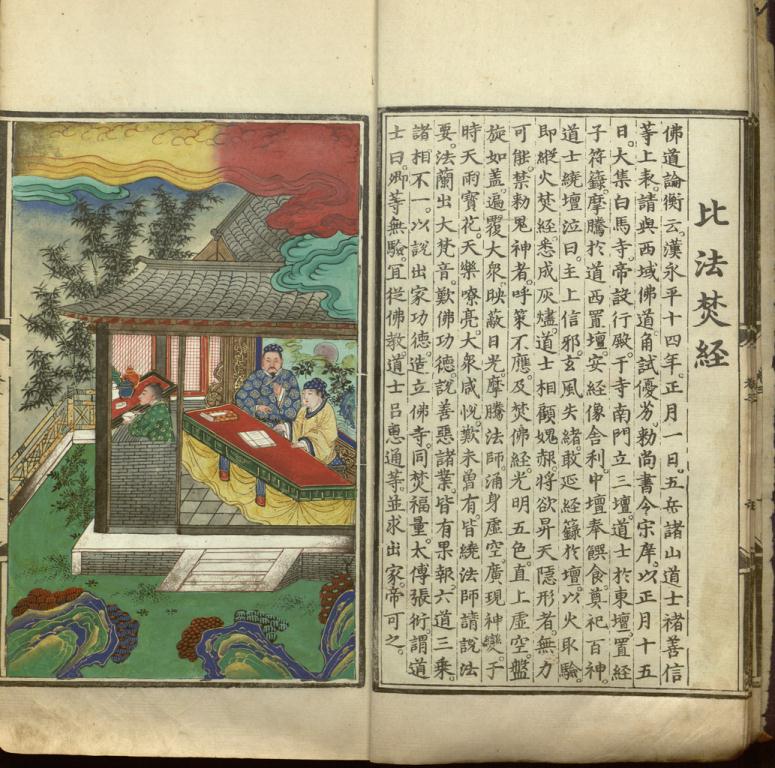 比法焚經
佛道論衡云。漢永平十四年。正月一日。五岳諸山道士褚善信
等上表。請與西域佛道。角試優劣。勑尚書令宋庠。以正月十五
日。大集白馬寺。帝設行殿。于寺南門立三壇。道士於東壇。置經
子符籙。摩騰於道西置壇。安經像舍利。中壇奉饌食。奠祀百神。
道士繞壇泣曰。主上信邪。玄風失緒。敢延經籙於壇。以火取驗。
即縱火焚經。悉成灰燼。道士相顧媿赧。將欲昇天隱形者。無力
可能。禁勑鬼神者。呼策不應。及焚佛經。光明五色。直上虛空。盤
旋如蓋。遍覆大衆。映蔽日光。摩騰法師。涌身虛空。廣現神變。于
時天雨寳花。天樂嘹亮。大衆咸悅。歎未曾有。皆繞法師。請說法
要。法蘭出大梵音。歎佛功德。說善惡諸業。皆有果報。六道三乘。
諸相不一。以說出家功德。造立佛寺。同焚福量。太傅張衍。謂道
士曰。卿等無驗。宜從佛教。道士呂惠通等。並求出家。帝可之。